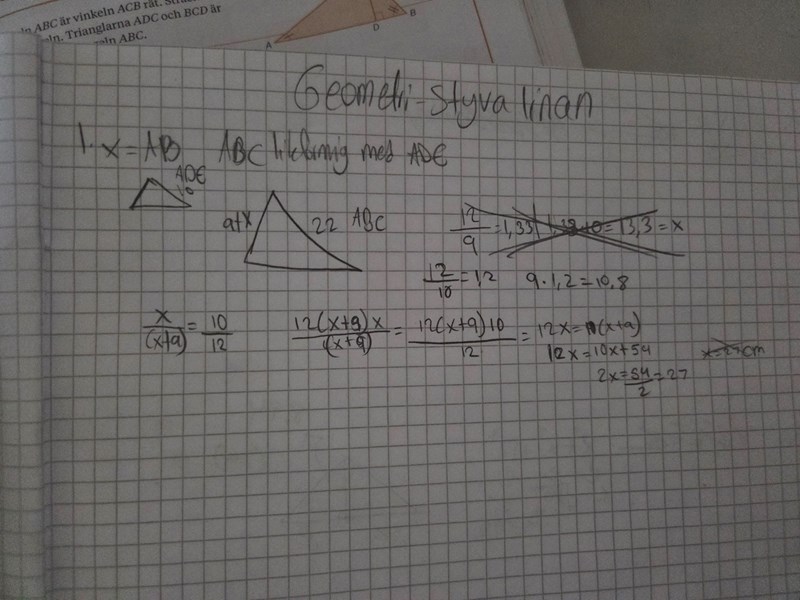 ln ABC är vinkeln ACB rät.
eln. Trianglarna ADC och BCD är
geln ABC.
A
D
B
Geometri - Styva linan
1. x = AB ABC likformig med ADE
ADE
10
9+x
22 ABC
12/9 = 1,33 = 13,3 = x
12/10 = 12 9·1,2 = 10.8
x/(x+9) = 10/12 12(x+9)x/(x+9) = 12(x+9)10/12 = 12x = (x+9)
12x = 10x+54
x=27cm
2x = 54/2 = 27